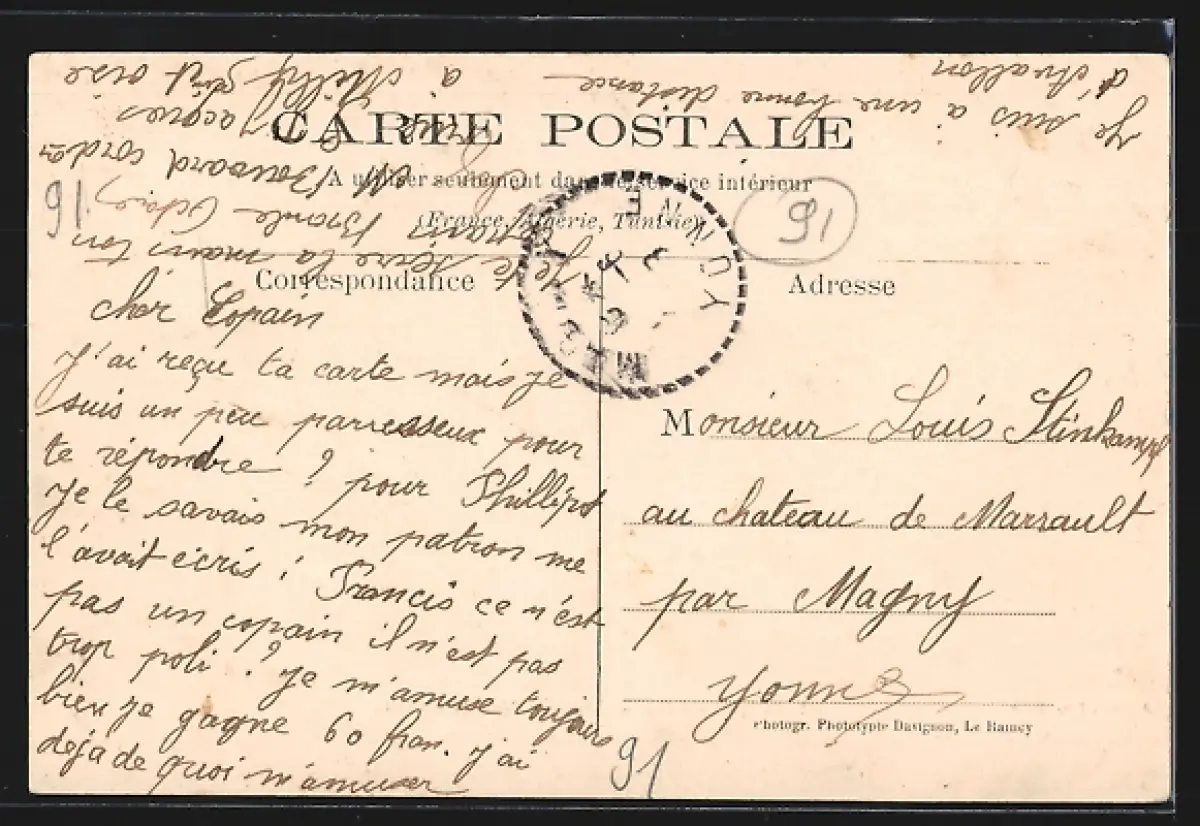 CARTE POSTALE
A utiliser seulement dans le service intérieur
(France, Algérie, Tunisie)
Correspondance
Adresse
cher Copain
J'ai reçu ta carte mais je
suis un peu parresseux pour
te répondre ? pour Phillipot
je le savais mon patron me
l'avait écris ; Francis ce n'est
pas un copain il n'est pas
trop poli ? Je m'amuse toujours
bien je gagne 60 fran. j'ai
deja de quoi m'amuser
Je suis a une bonne distance
d'Avallon
a Milly Seine et oise
Je te serre la main ton
copain
91
91
91
Monsieur Louis Stinkampf
au chateau de Marrault
par Magny
Yonne
Photogr. Phototypie Davignon, Le Raincy